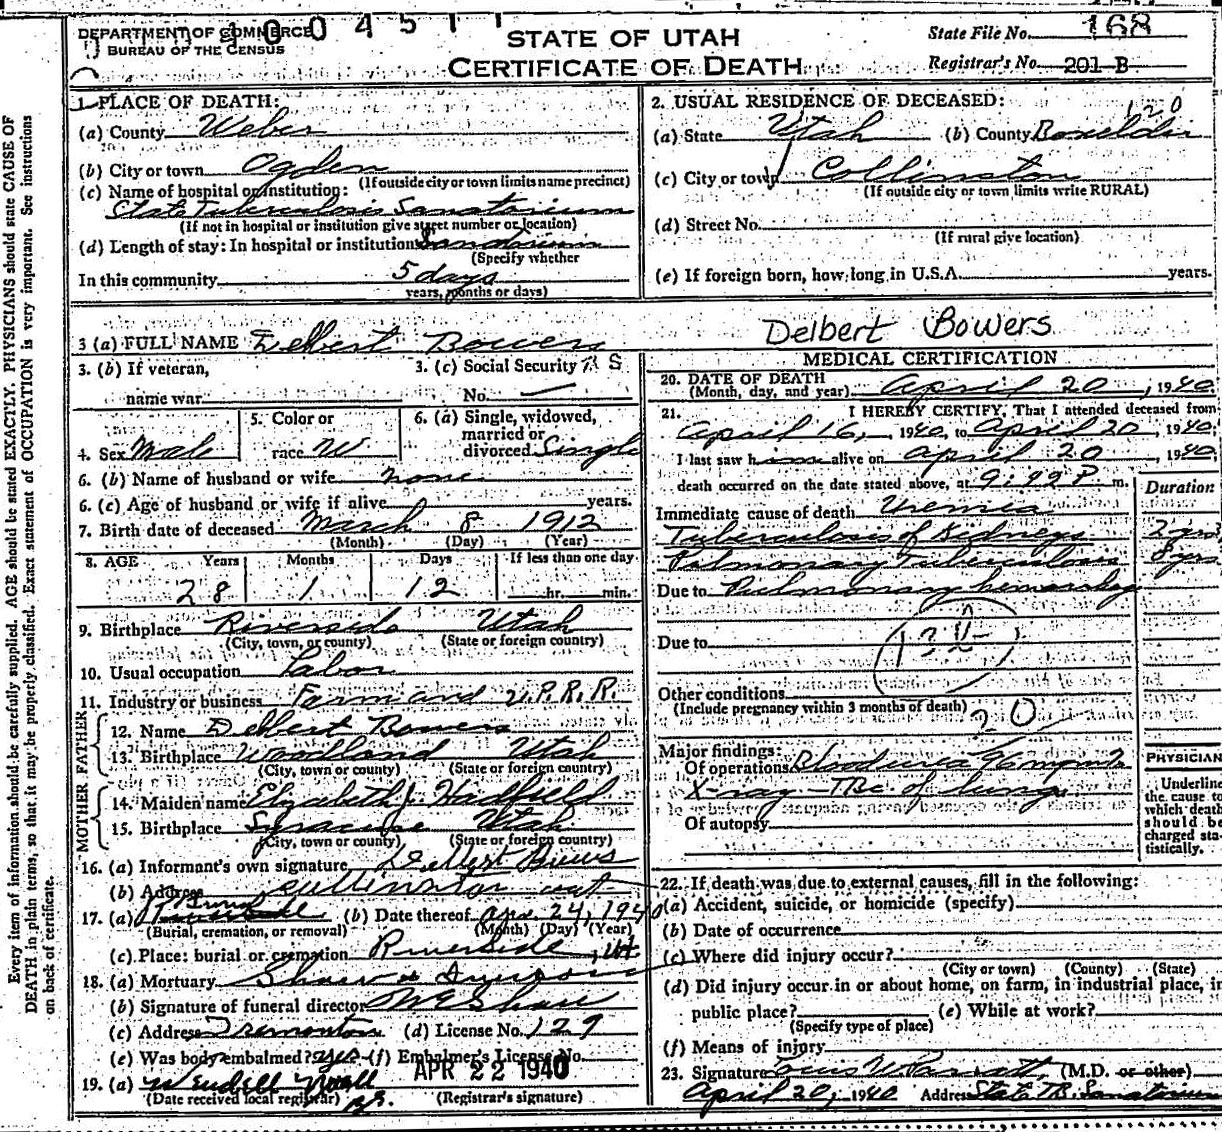 Every item of information should be carefully supplied. AGE should be stated EXACTLY. PHYSICIANS should state CAUSE OF
DEATH in plain terms, so that it may be properly classified. Exact statement of OCCUPATION is very important. See instructions
on back of certificate.
DEPARTMENT OF COMMERCE
BUREAU OF THE CENSUS
STATE OF UTAH
CERTIFICATE OF DEATH
State File No. 168
Registrar's No. 201 B
1. PLACE OF DEATH:
(a) County Weber
(b) City or town Ogden
(If outside city or town limits name precinct)
(c) Name of hospital or institution:
State Tuberculosis Sanatorium
(If not in hospital or institution give street number or location)
(d) Length of stay: In hospital or institution Sanatorium
(Specify whether
In this community 5 days
years, months or days)
2. USUAL RESIDENCE OF DECEASED:
120
(a) State Utah (b) County
(c) City or town Collinston
(If outside city or town limits write RURAL)
(d) Street No.
(If rural give location)
(e) If foreign born, how long in U.S.A. years.
3 (a) FULL NAME Delbert Bowers
Delbert Bowers
3. (b) If veteran,
name war
3. (c) Social Security
No.
4. Sex Male
5. Color or
race W
6. (a) Single, widowed,
married or
divorced Single
6. (b) Name of husband or wife none
6. (c) Age of husband or wife if alive years.
7. Birth date of deceased March 8 1912
(Month) (Day) (Year)
8. AGE Years Months Days If less than one day
28 1 12 hr. min.
9. Birthplace Riverside Utah
(City, town, or county) (State or foreign country)
10. Usual occupation Labor
11. Industry or business Farm and U.P.R.R.
FATHER
12. Name Delbert Bowers
13. Birthplace Woodland Utah
(City, town or county) (State or foreign country)
MOTHER
14. Maiden name Elizabeth J. Hadfield
15. Birthplace Syracuse Utah
(City, town or county) (State or foreign country)
16. (a) Informant's own signature Delbert Bowers
(b) Address
17. (a) Burial (b) Date thereof Apr. 24, 1940
(Burial, cremation, or removal) (Month) (Day) (Year)
(c) Place: burial or cremation Riverside, Ut.
18. (a) Mortuary
(b) Signature of funeral director
(c) Address Tremonton (d) License No. 129
(e) Was body embalmed? yes (f) Embalmer's License No.
APR 22 1940
19. (a) Wendell
(Date received local registrar) (Registrar's signature)
MEDICAL CERTIFICATION
20. DATE OF DEATH
(Month, day, and year) April 20, 1940
21. I HEREBY CERTIFY, That I attended deceased from
April 16, 1940, to April 20, 1940;
I last saw him alive on April 20 1940
death occurred on the date stated above, at 9:42 P m.
Duration
Immediate cause of death Uremia
Tuberculosis of Kidneys 2 yrs
Pulmonary Tuberculosis 8 yrs
Due to Pulmonary hemorrhage
Due to
Other conditions
(Include pregnancy within 3 months of death)
20
Major findings:
Of operations
X-ray - TBc of lungs
Of autopsy
PHYSICIAN
Underline
the cause to
which death
should be
charged sta-
tistically.
22. If death was due to external causes, fill in the following:
(a) Accident, suicide, or homicide (specify)
(b) Date of occurrence
(c) Where did injury occur?
(City or town) (County) (State)
(d) Did injury occur in or about home, on farm, in industrial place, in
public place? (e) While at work?
(Specify type of place)
(f) Means of injury
23. Signature (M.D. or other)
April 20, 1940 Address State TB. Sanatorium